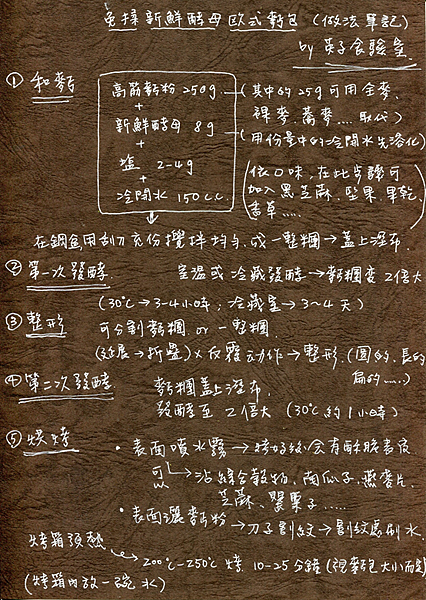 免揉新鮮酵母歐式麵包 (做法筆記)
by 英子食驗室
① 和麵
高筋麵粉 250g
+
新鮮酵母 8g
+
鹽 2-4g
+
冷開水 150 c.c.
(其中的 25g 可用全麥、
裸麥、蕎麥....取代)
(用份量中的冷開水先溶化)
(依口味,在此步驟可
加入黑芝麻、堅果、果乾、
香草.....)
在鋼盆用刮刀充份攪拌均勻,成一整糰→蓋上溼布.
② 第一次發酵. 室溫或冷藏發酵→麵糰變 2倍大
(30℃→3-4小時;冷藏室→3~4天)
③ 整形 可分割麵糰 or 一整糰.
(延展→折疊)×反覆動作→整形.(圓的.長的
扁的.....)
④ 第二次發酵. 麵糰蓋上溼布,
發酵至 2倍大 (30℃約1小時)
⑤ 烘烤 • 表面噴水霧→烤好後會有酥脆表皮
可以→沾綜合穀物、南瓜子、燕麥片、
芝麻、罌粟子.....
• 表面灑麵粉→刀子劃紋→劃紋處刷水.
烤箱預熱
200℃-250℃ 烤 10-25分鐘(視麵包大小而定)
(烤箱內放一碗水)